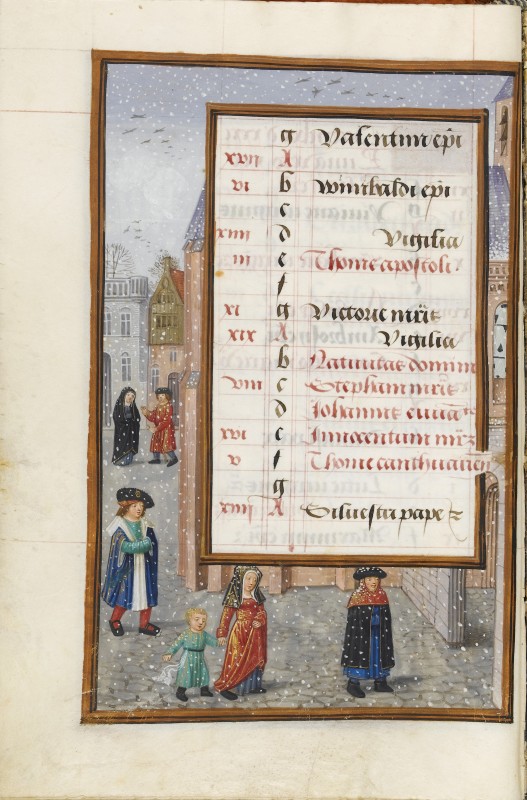 g Valentini epi
xvii A
vi b Winibaldi epi
c
xiiii d Vigilia
iii e Thome apostoli.
f
xi g Victorie mris
xix A Vigilia
b Natiuitas domini
viii c Stephani mris
d Johannis euua
xvi e Innocentum mr
v f Thome canthuarien
g
xiii A Siluestri pape